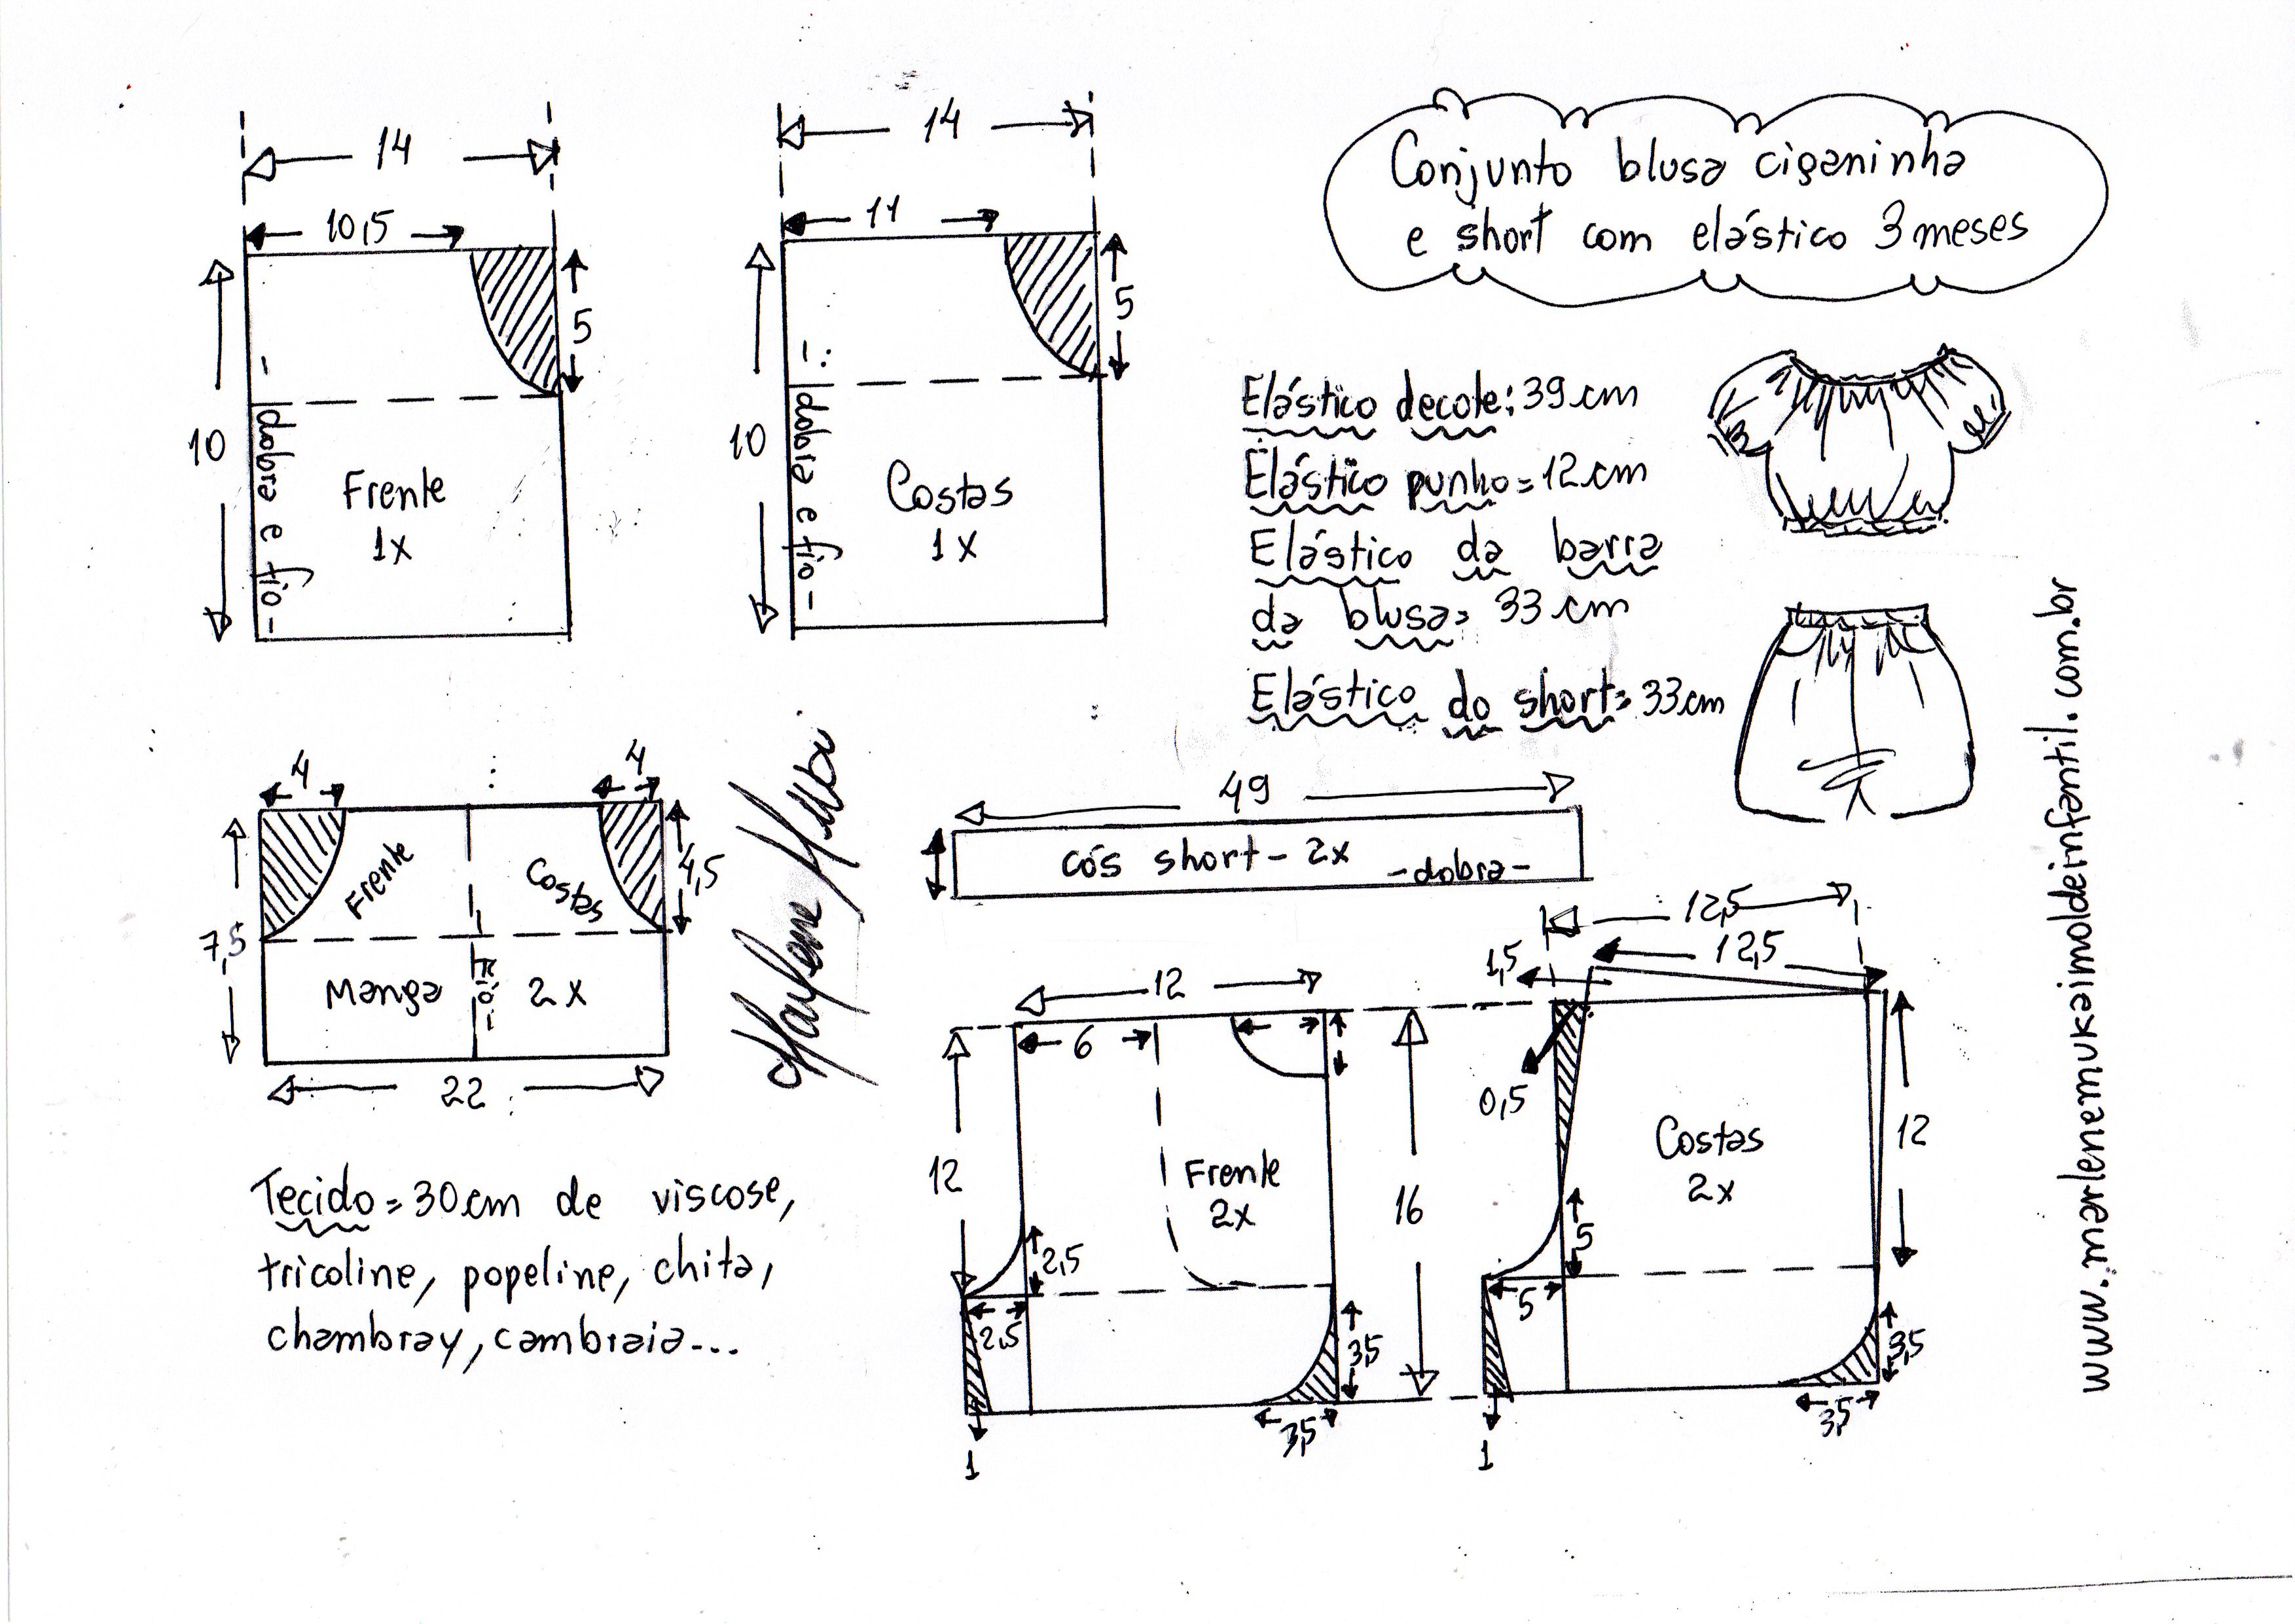 Conjunto blusa ciganinha
e short com elástico 3 meses
14
10,5
5
10
-dobra e fio-
Frente
1x
14
11
5
10
-dobra e fio-
Costas
1x
Elástico decote: 39 cm
Elástico punho = 12 cm
Elástico da barra
da blusa = 33 cm
Elástico do short = 33 cm
4
4
4,5
7,5
Frente
Costas
Manga
-fio-
2x
22
Tecido = 30 cm de viscose,
tricoline, popeline, chita,
chambray, cambraia...
49
cós short - 2x
-dobra-
12
6
12
2,5
2,5
Frente
2x
16
3,5
3,5
1
12,5
12,5
1,5
0,5
Costas
2x
12
5
5
3,5
3,5
1
www.marlenemukaimoldeinfantil.com.br